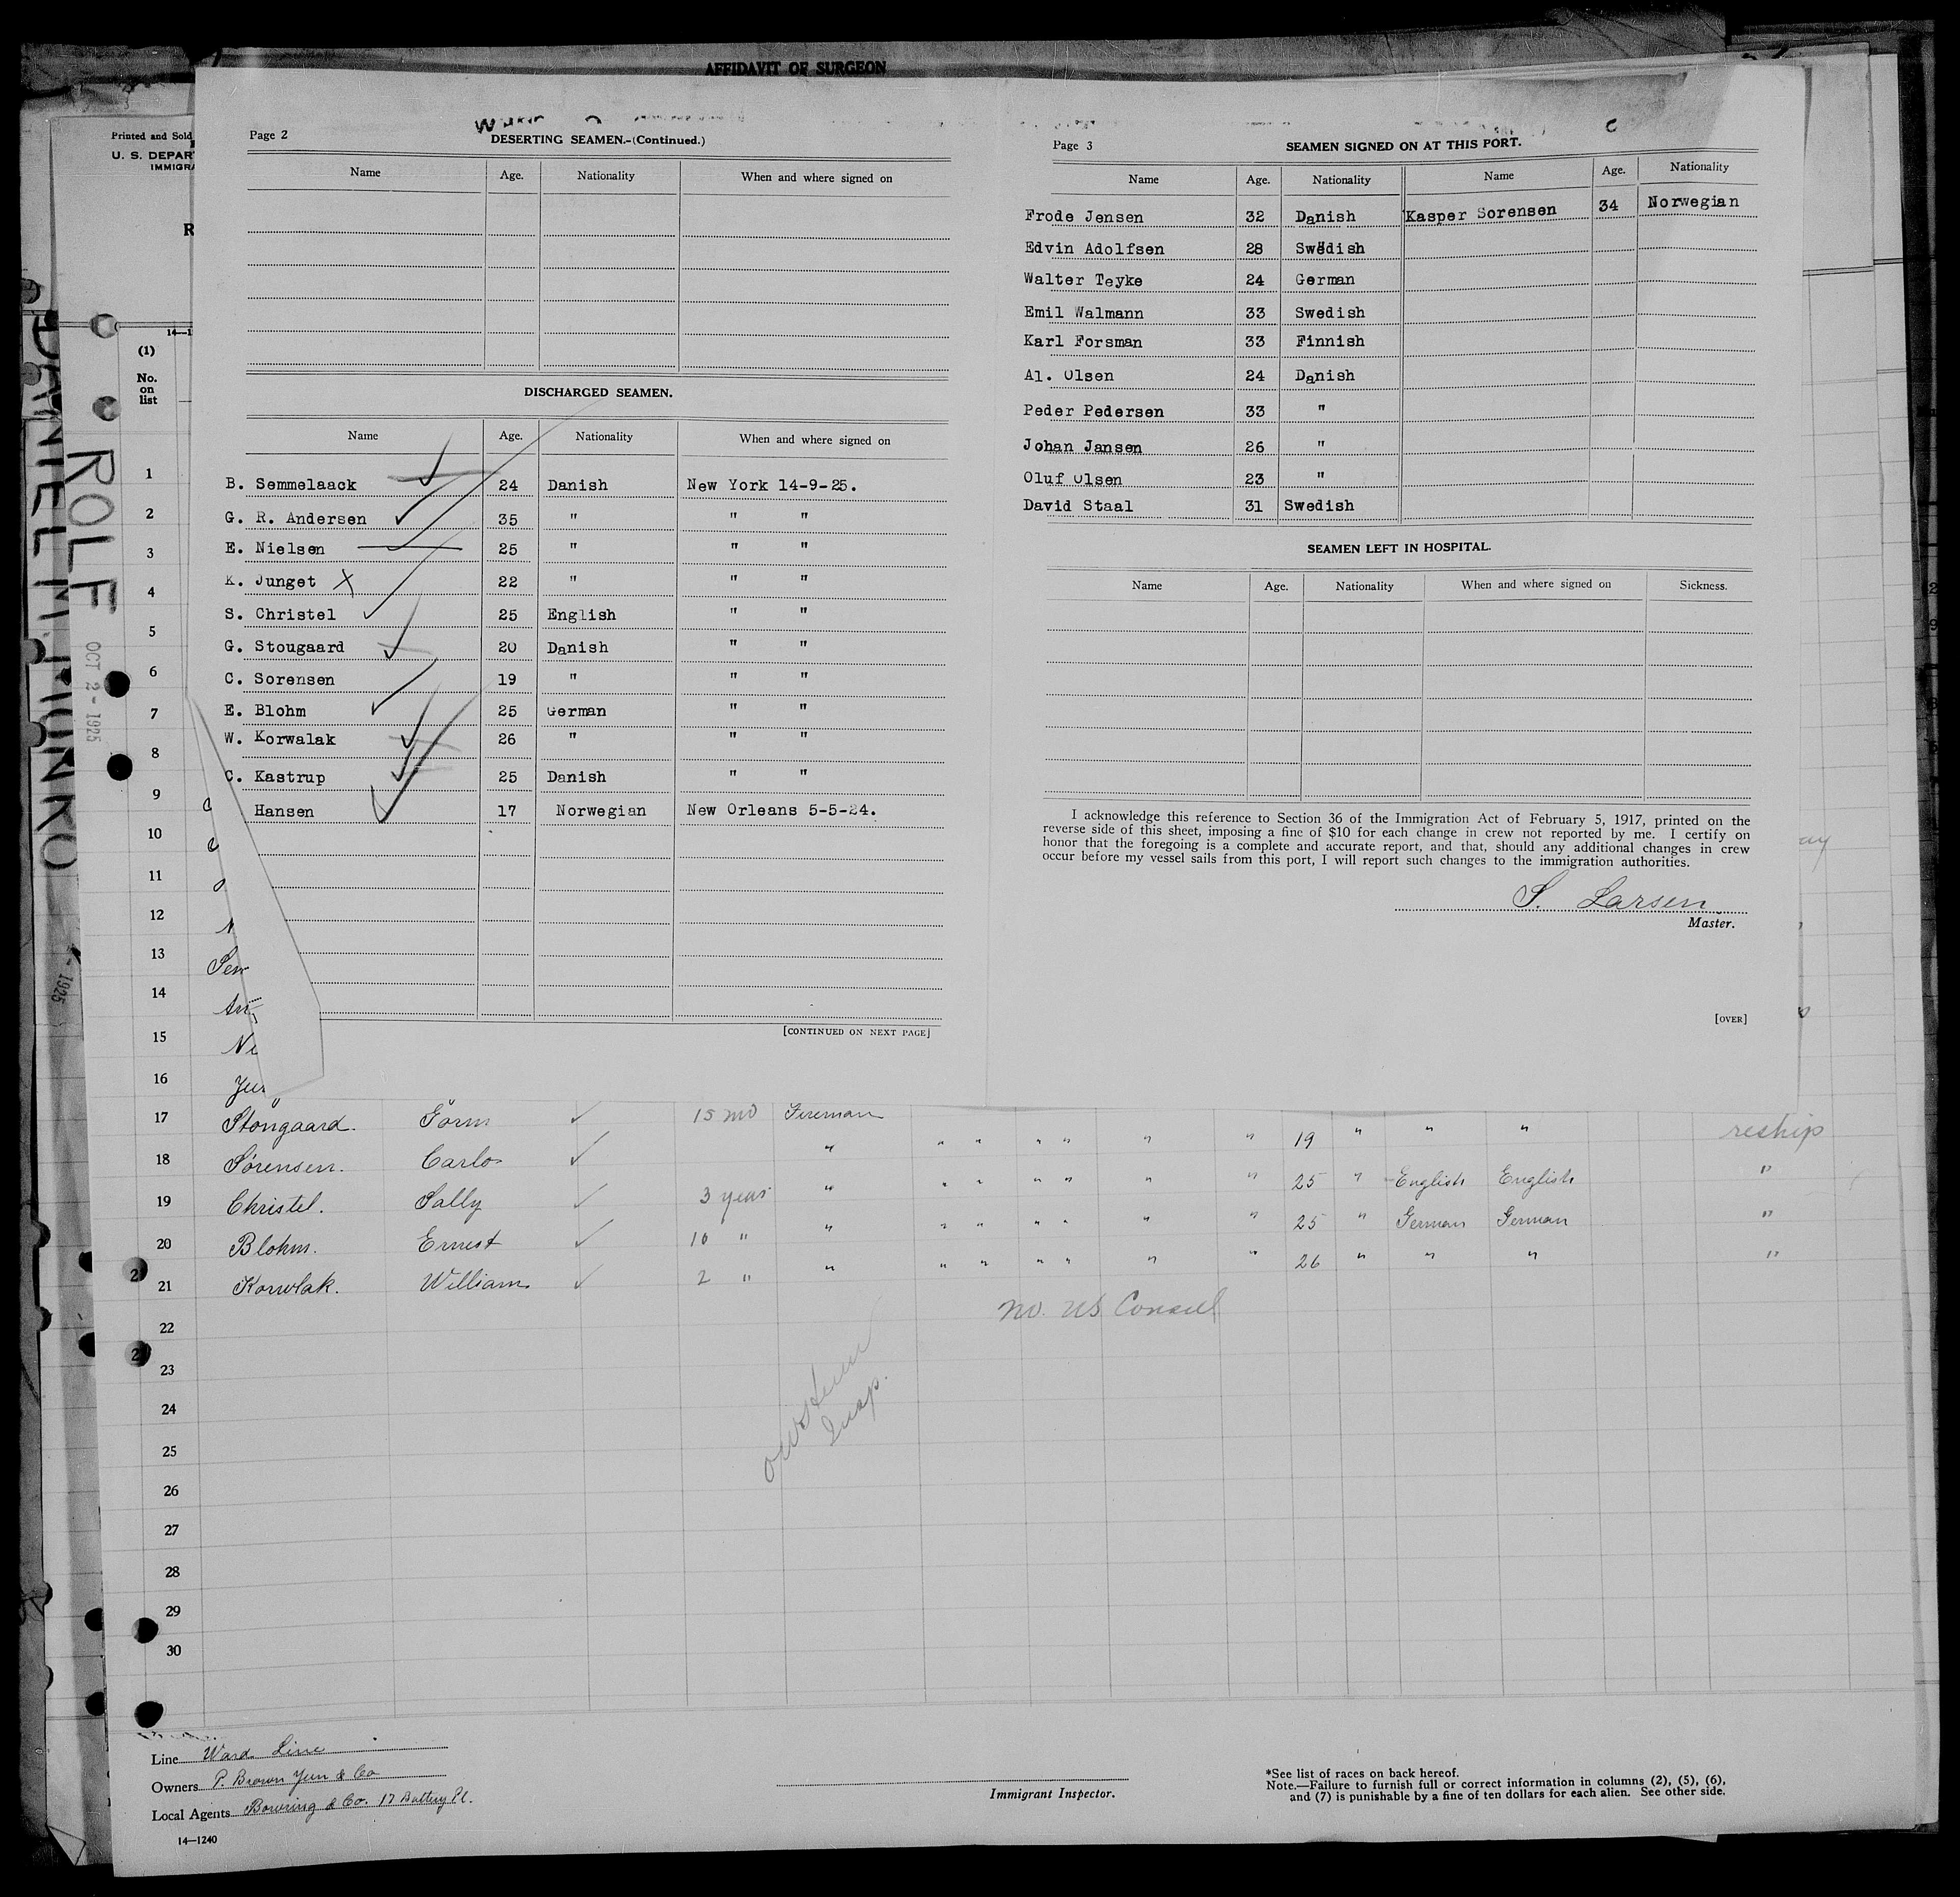 AFFIDAVIT OF SURGEON
Printed and Sold
U. S. DEPAR
IMMIGRA
R
14—1
(1)
No.
on
list
ROLF
OCT 2 - 1925
DANIEL M. MUNKO
- 1925
Page 2
DESERTING SEAMEN.-(Continued.)
Name Age. Nationality When and where signed on
DISCHARGED SEAMEN.
Name Age. Nationality When and where signed on
B. Semmelaack 24 Danish New York 14-9-25.
G. R. Andersen 35 " " "
E. Nielsen 25 " " "
K. Junget X 22 " " "
S. Christel 25 English " "
G. Stougaard 20 Danish " "
C. Sorensen 19 " " "
E. Blohm 25 German " "
W. Korwalak 26 " " "
C. Kastrup 25 Danish " "
Hansen 17 Norwegian New Orleans 5-5-24.
[CONTINUED ON NEXT PAGE]
Page 3
SEAMEN SIGNED ON AT THIS PORT.
Name Age. Nationality Name Age. Nationality
Frode Jensen 32 Danish Kasper Sorensen 34 Norwegian
Edvin Adolfsen 28 Swedish
Walter Teyke 24 German
Emil Walmann 33 Swedish
Karl Forsman 33 Finnish
Al. Olsen 24 Danish
Peder Pedersen 33 "
Johan Jansen 26 "
Oluf Olsen 23 "
David Staal 31 Swedish
SEAMEN LEFT IN HOSPITAL.
Name Age. Nationality When and where signed on Sickness.
I acknowledge this reference to Section 36 of the Immigration Act of February 5, 1917, printed on the
reverse side of this sheet, imposing a fine of $10 for each change in crew not reported by me. I certify on
honor that the foregoing is a complete and accurate report, and that, should any additional changes in crew
occur before my vessel sails from this port, I will report such changes to the immigration authorities.
S. Larsen
Master.
[OVER]
1
2
3
4
5
6
7
8
9
10
11
12
13
14
15
16
17 Stongaard. Gorm ✓ 15 mo Fireman
18 Sörensen. Carlo ✓ " " " " " " " 19 " " " reship
19 Christel. Sally ✓ 3 years " " " " " " " 25 " English English "
20 Blohm. Ernest ✓ 10 " " " " " " " " 25 " German German "
21 Korwlak. William ✓ 2 " " " " " " " " 26 " " " "
22
No. US Consul
23
24
Insp.
25
26
27
28
29
30
Line Ward Line
Owners P. Brown Jun & Co
Local Agents Bowring & Co. 17 Battery Pl.
14—1240
Immigrant Inspector.
*See list of races on back hereof.
Note.—Failure to furnish full or correct information in columns (2), (5), (6),
and (7) is punishable by a fine of ten dollars for each alien. See other side.